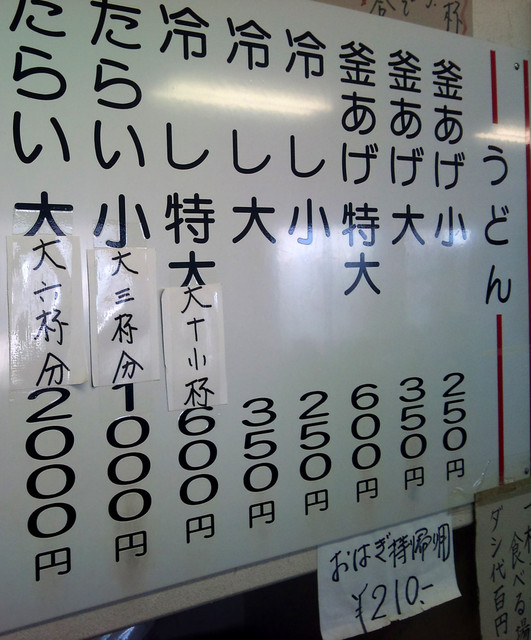 うどん
釜あげ小 250円
釜あげ大 350円
釜あげ特大 600円
冷し小 250円
冷し大 350円
冷し特大 600円
大十小杯
たらい小 1000円
大三杯分
たらい大 2000円
大六杯分
おはぎ持帰用
¥210.-
食べる
ダシ代百円